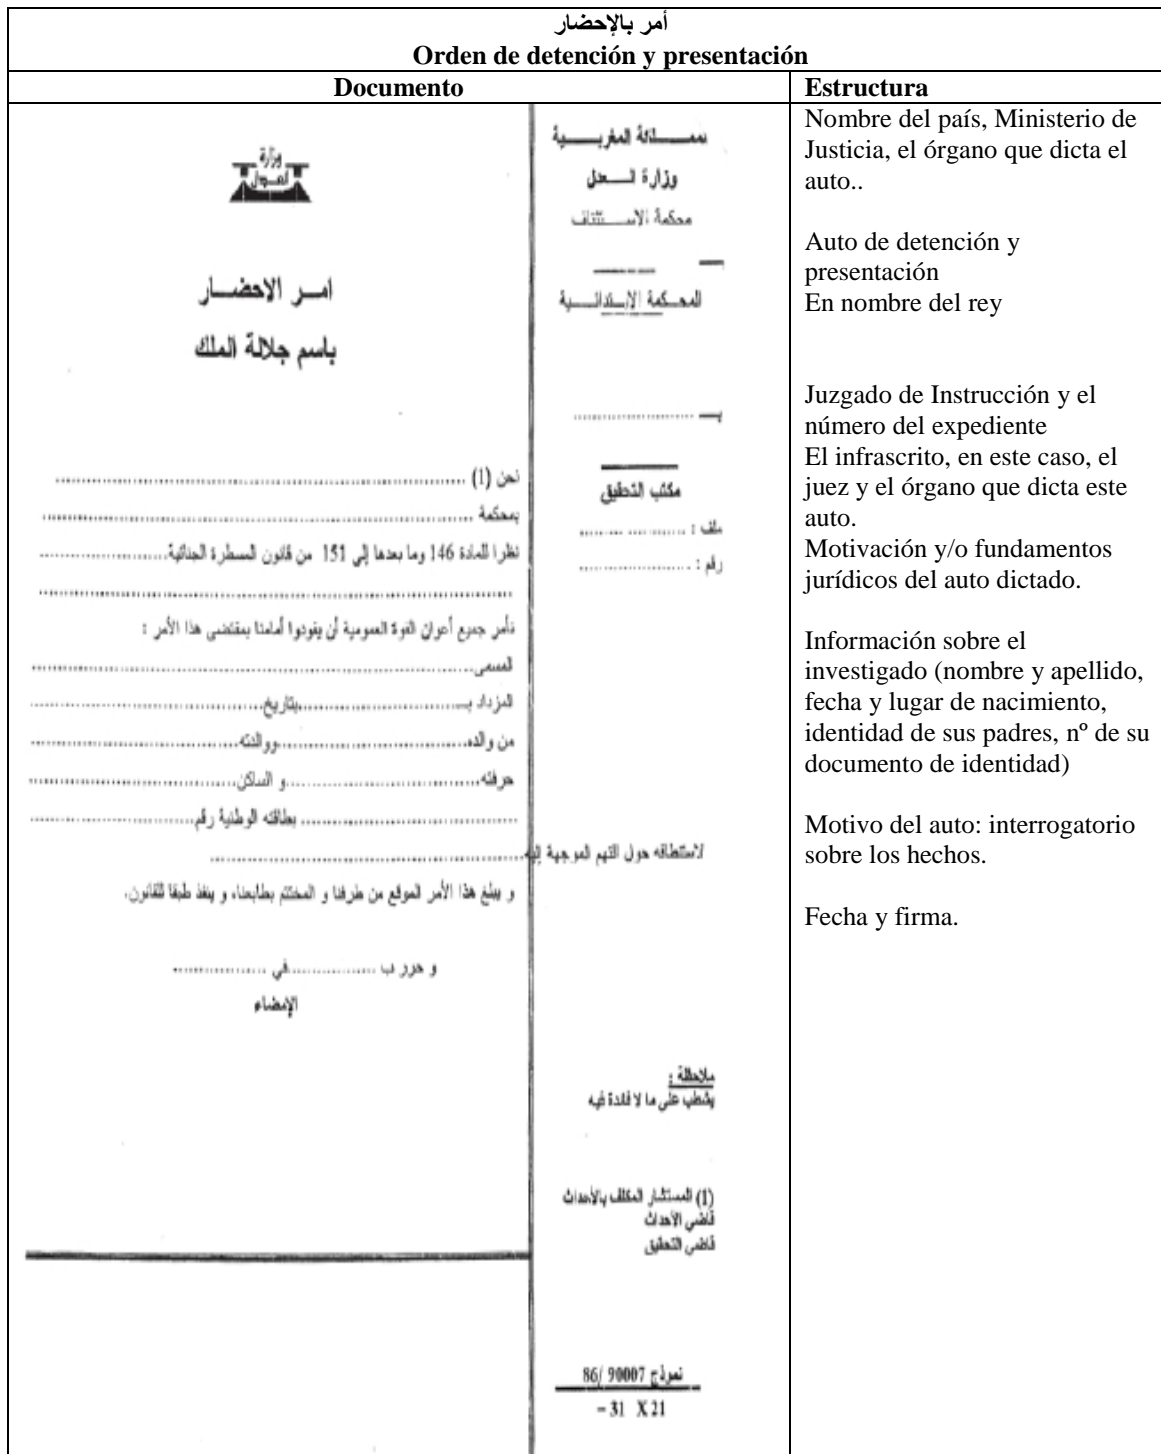 أمر بالإحضار
Orden de detención y presentación
Documento
Estructura
المغربية
وزارة العدل
محكمة الاستئناف
المحكمة الابتدائية
بـ ........................
مكتب التحقيق
ملف : ......................
رقم : ......................
ملاحظة :
يشطب على ما لا فائدة فيه
(1) المستشار المكلف بالأحداث
قاضي الأحداث
قاضي التحقيق
نموذج 90007 /86
– 31 X 21
وزارة العدل
امر الاحضار
باسم جلالة الملك
نحن (1) ........................
بمحكمة ........................
نظرا للمادة 146 وما بعدها إلى 151 من قانون المسطرة الجنائية........................
........................
نأمر جميع أعوان القوة العمومية أن يقودوا أمامنا بمقتضى هذا الأمر :
المسمى........................
المزداد بـ........................بتاريخ........................
من والده........................ووالدته........................
حرفته........................و الساكن........................
........................ بطاقته الوطنية رقم........................
لاستنطاقه حول التهم الموجهة إليه........................
و يبلغ هذا الأمر الموقع من طرفنا و المختتم بطابعنا، و ينفذ طبقا للقانون.
و حرر ب ..................في ..................
الإمضاء
Nombre del país, Ministerio de
Justicia, el órgano que dicta el
auto..
Auto de detención y
presentación
En nombre del rey
Juzgado de Instrucción y el
número del expediente
El infrascrito, en este caso, el
juez y el órgano que dicta este
auto.
Motivación y/o fundamentos
jurídicos del auto dictado.
Información sobre el
investigado (nombre y apellido,
fecha y lugar de nacimiento,
identidad de sus padres, nº de su
documento de identidad)
Motivo del auto: interrogatorio
sobre los hechos.
Fecha y firma.